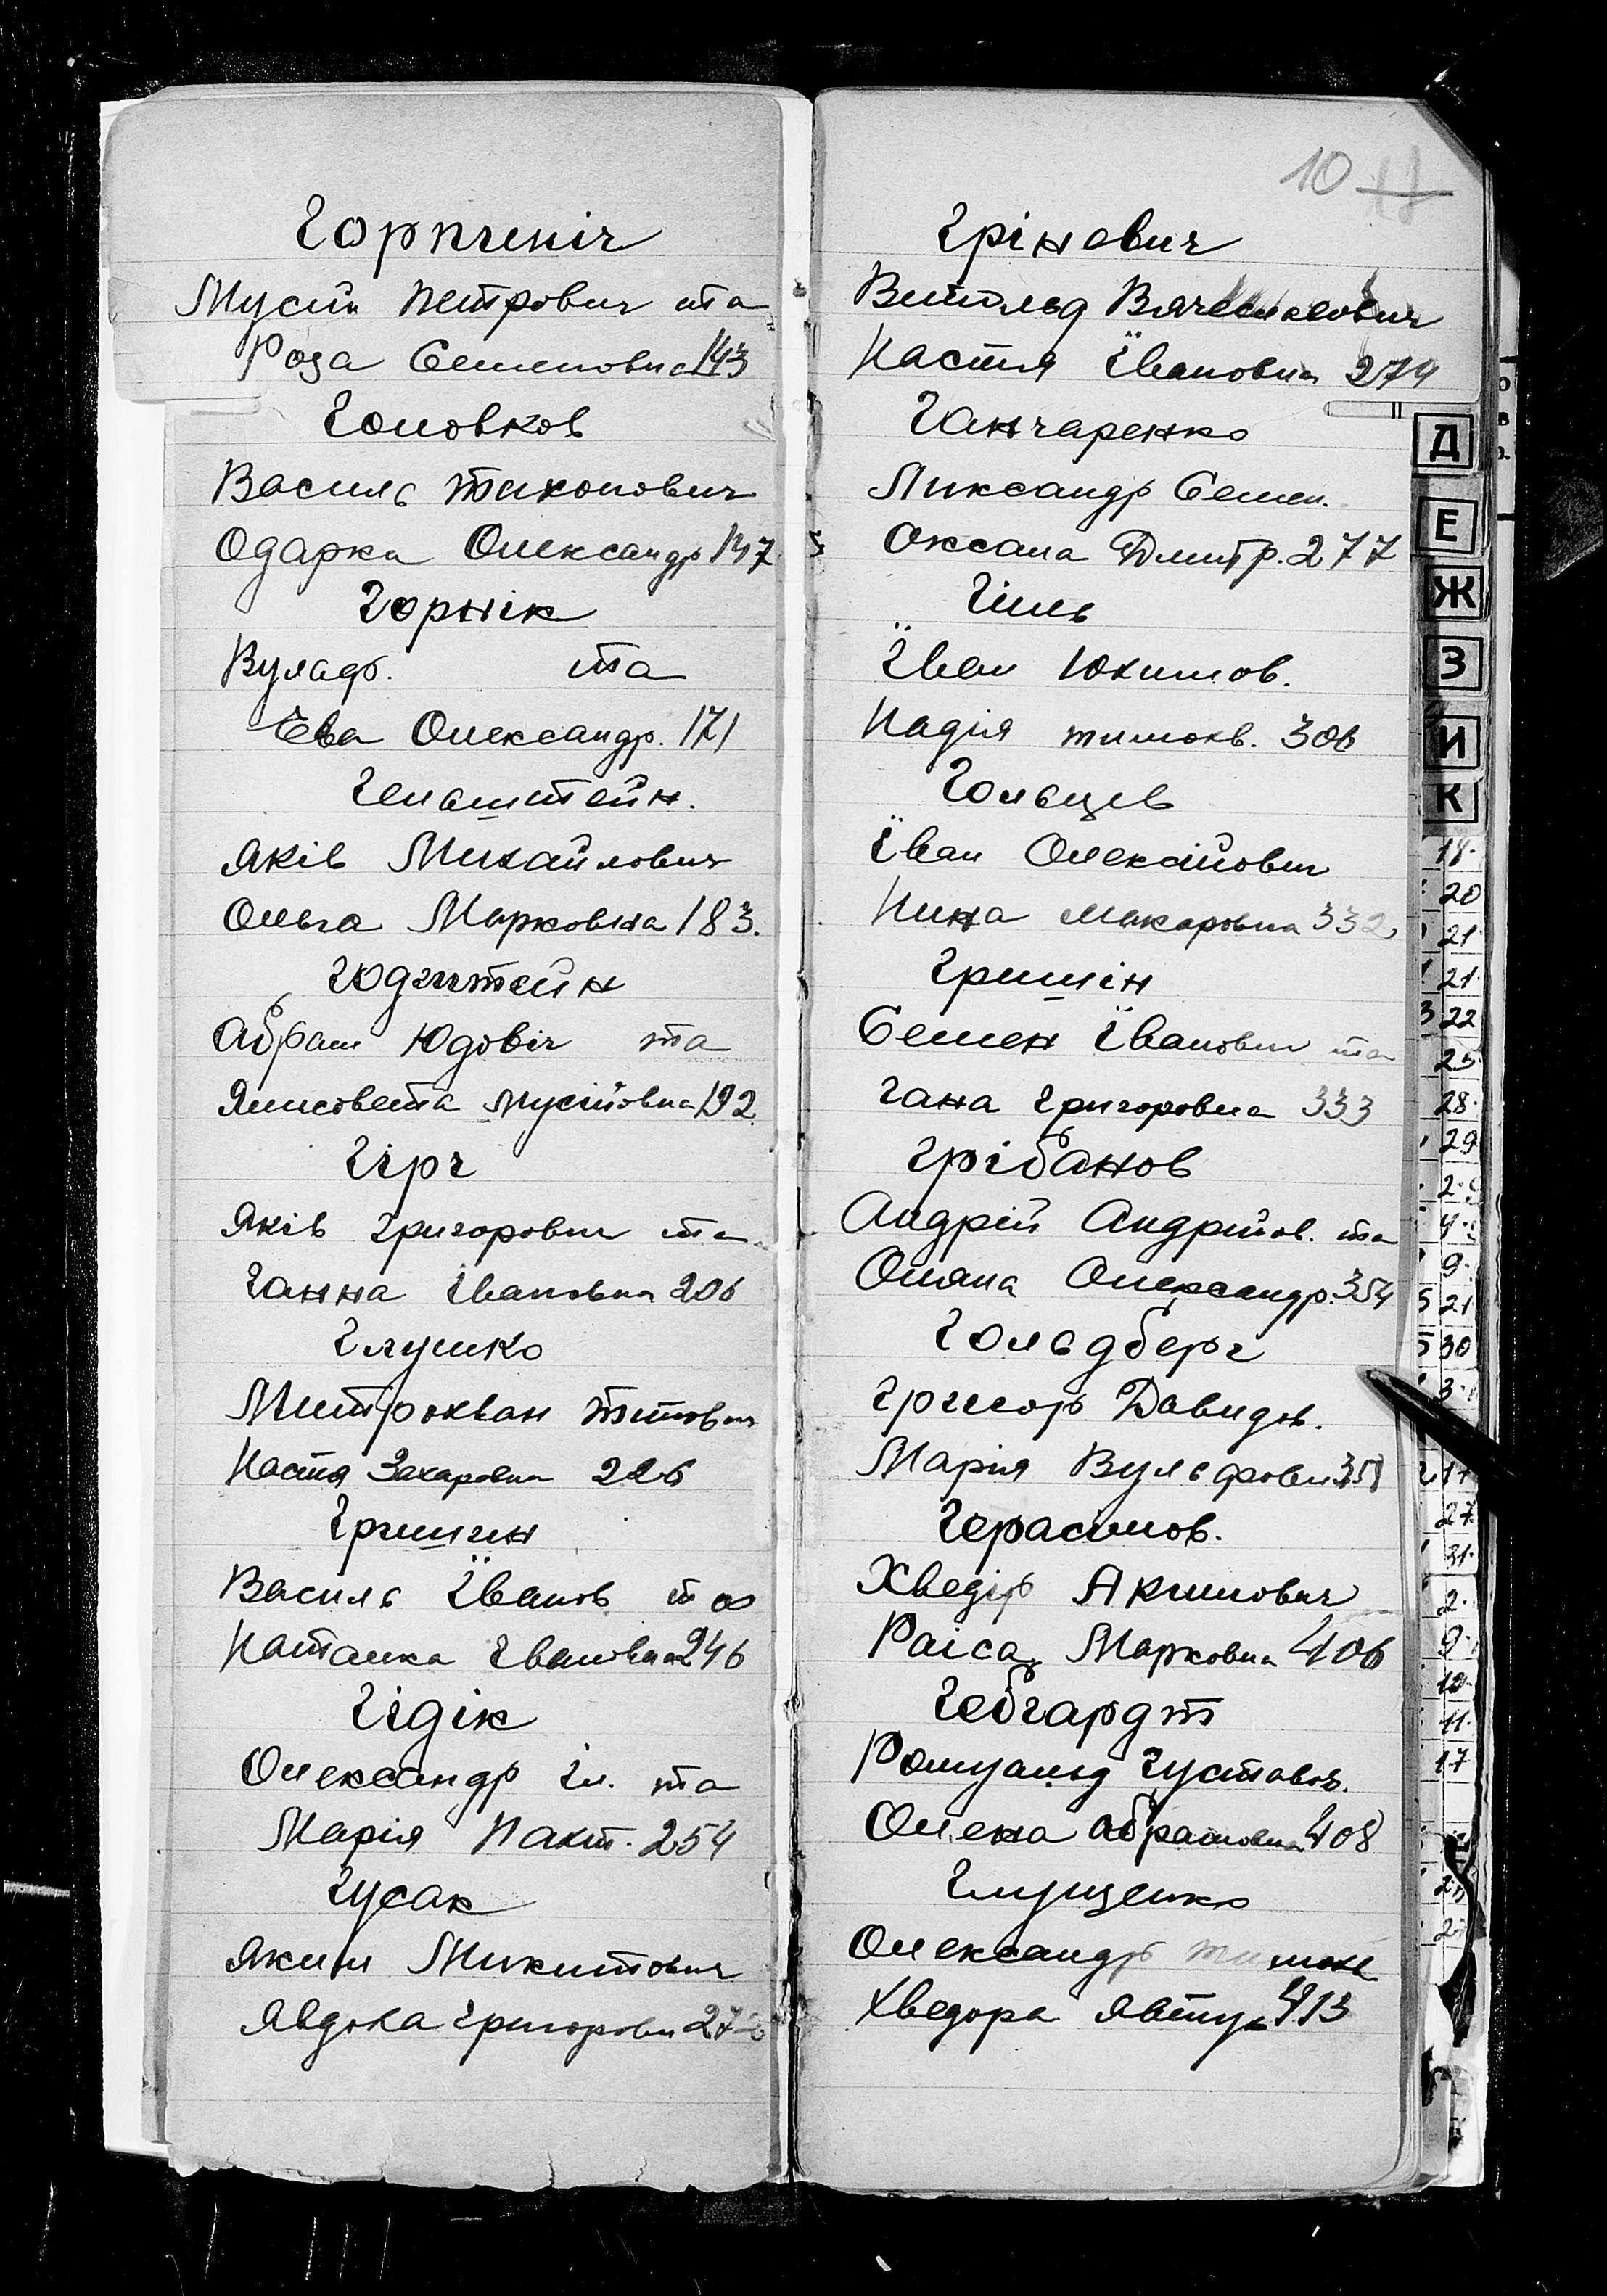 Горпченіг
Мусій Петрович та
Роза Семеновна 143
Головков
Василь Тихонович
Одарка Олександр 147
Горнік
Вулад. та
Ева Олександр. 171
Гельштейн.
Яків Михайлович
Ольга Марковна 183.
Абрам Юдовіч та
Ялисовета Мусіовна 192.
Гірг
Яків Григорович та
Ганна Івановна 206
Глушко
Митрокван Титович
Настя Захаровна 226
Гришин
Василь Їванов та
Наталка Івановна 246
Гідік
Олександр Іл. та
Марія Накт. 254
Гусак
Яким Микитович
Явдоха Григоровн
10
Гріневич
Витольд Вячеславович
Настя Ївановна 274
Ганчаренко
Ликсандр Семен.
Оксана Дмитр. 277
Гіль
Їван Юхимов.
Надія тимохв. 306
Гольцев
Їван Олексійович
Нина Макаровна 332
Гришін
Семен Їванович та
Гана Григоровна 333
Грібанов
Андрій Андрійов. та
Оляна Олександр. 354
Гольдберг
Грегор Давидов.
Марія Вульфовн 358
Герасимов.
Хведір Акимович
Раіса Марковна 406
Гебгардт
Ромуальд Густавов.
Олена Абрамовна 408
Глущенко
Олександр тимох
Хведора Явтух 413
Д
Е
Ж
З
И
К
18.
20
21
21.
22
25
28.
29
9.
21
30
27.
31.
2.
9.
10.
11.
17